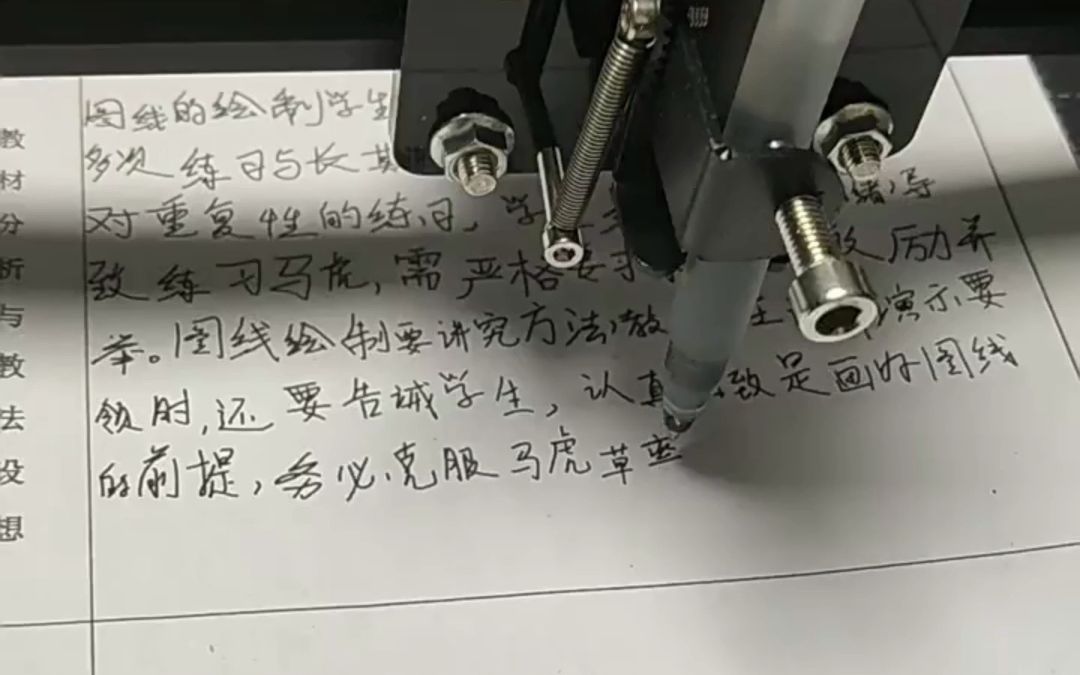 教材分析与教法设想
图线的绘制学生
多次练习与长其
对重复性的练习,学 绪导
致练习马虎,需严格要求 励并
举。图线绘制要讲究方法,教 演示要
领时,还要告诫学生,认真 致是画好图线
的前提,务必克服马虎草率